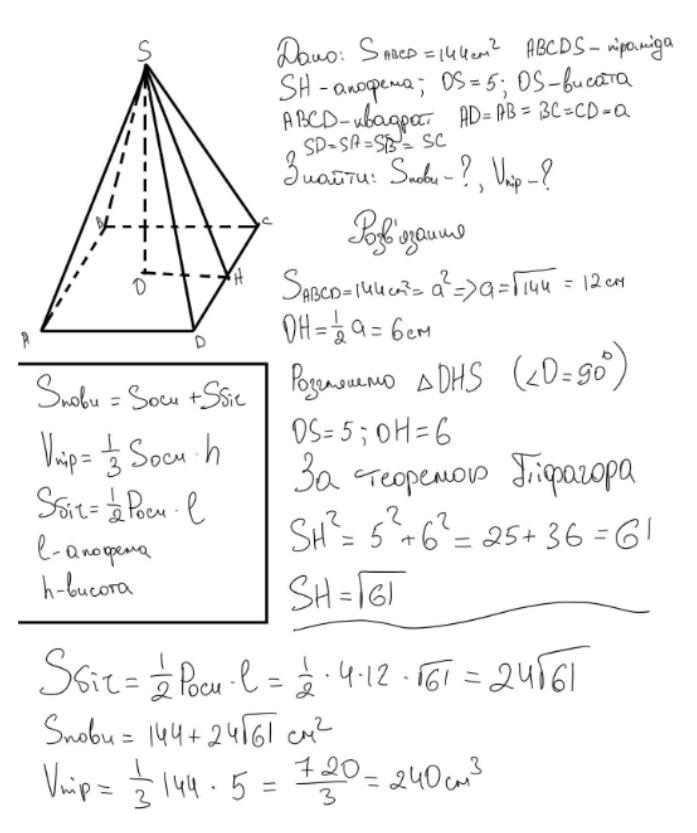 S
A
B
C
D
O
H
Дано: S ABCD = 144 см² ABCDS – піраміда
SH – апофема; OS = 5; OS – висота
ABCD – квадрат AD = AB = BC = CD = a
SD = SA = SB = SC
Знайти: Sповн – ?, Vпір – ?
Розв'язання
S ABCD = 144 см² = a² => a = √144 = 12 см
OH = 1/2 a = 6 см
Розглянемо △OHS (∠O = 90°)
OS = 5; OH = 6
За теоремою Піфагора
SH² = 5² + 6² = 25 + 36 = 61
SH = √61
Sповн = Sосн + Sбіч
Vпір = 1/3 Sосн · h
Sбіч = 1/2 Pосн · l
l – апофема
h – висота
Sбіч = 1/2 Pосн · l = 1/2 · 4 · 12 · √61 = 24√61
Sповн = 144 + 24√61 см²
Vпір = 1/3 144 · 5 = 720/3 = 240 см³